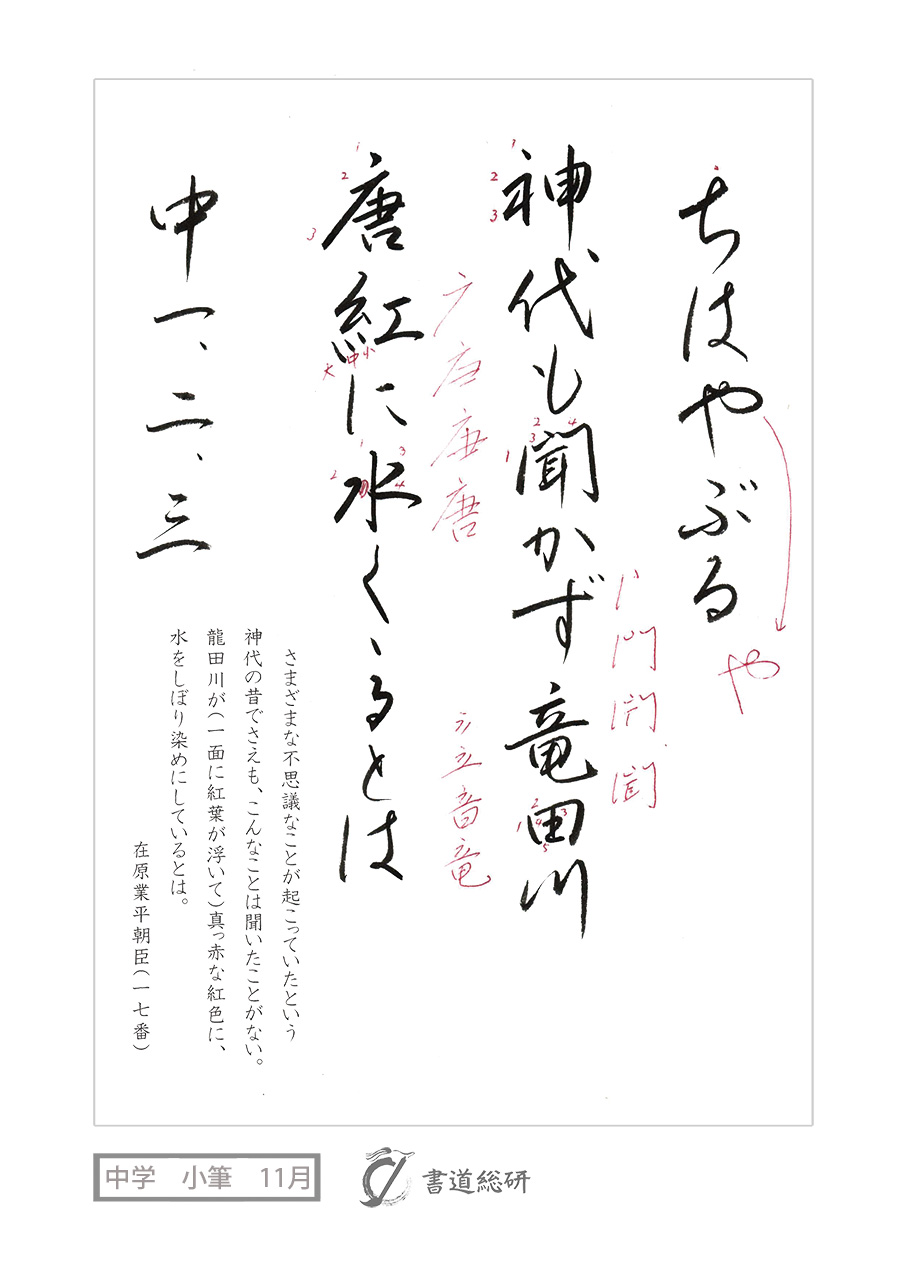 ちはやぶる
や
神代も聞かず竜田川
1
2
3
1
2
3
4
1
2
3
4
5
門
聞
唐紅に水くゝるとは
1
2
3
大
中
小
1
2
3
4
广
唐
立
音
竜
中一、二、三
さまざまな不思議なことが起こっていたという
神代の昔でさえも、こんなことは聞いたことがない。
龍田川が(一面に紅葉が浮いて)真っ赤な紅色に、
水をしぼり染めにしているとは。
在原業平朝臣(一七番)
中学 小筆 11月
書道総研